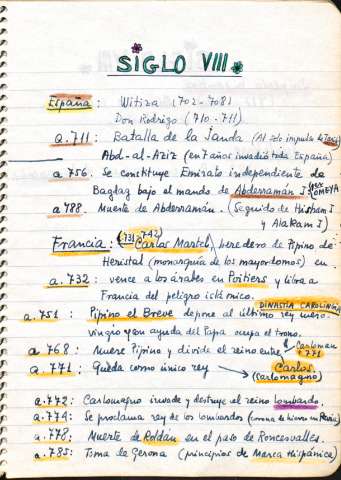 SIGLO VIII
España: Witiza (702-708)
Don Rodrigo (710-711)
a.711: Batalla de la Janda (Al de impulso de Tariq)
Abd-al-Aziz (en 7 años invadió toda España)
a 756. Se constituye Emirato independiente de
Bagdag bajo el mando de Abderramán I OMEYA
a 788. Muerte de Abderramán. (Seguido de Hixham I
y Alakam I)
(731-742)
Francia: Carlos Martel, heredero de Pipino de
Heristal (monarquía de los mayordomos) en
a. 732: vence a los árabes en Poitiers y libra a
Francia del peligro islámico.
DINASTIA CAROLINGIA
a. 751: Pipino el Breve depone al último rey mero-
vingio y con ayuda del Papa ocupa el trono.
a 768: Muere Pipino y divide el reino entre Carloman a. 771
a. 771: Queda como único rey Carlos
(Carlomagno)
a. 772: Carlomagno invade y destruye el reino lombardo.
a. 774: Se proclama rey de los lombardos (corona de hierro en Pavia)
a. 778: Muerte de Roldán en el paso de Roncesvalles.
a. 785: Toma de Gerona (principios de Marca Hispánica)